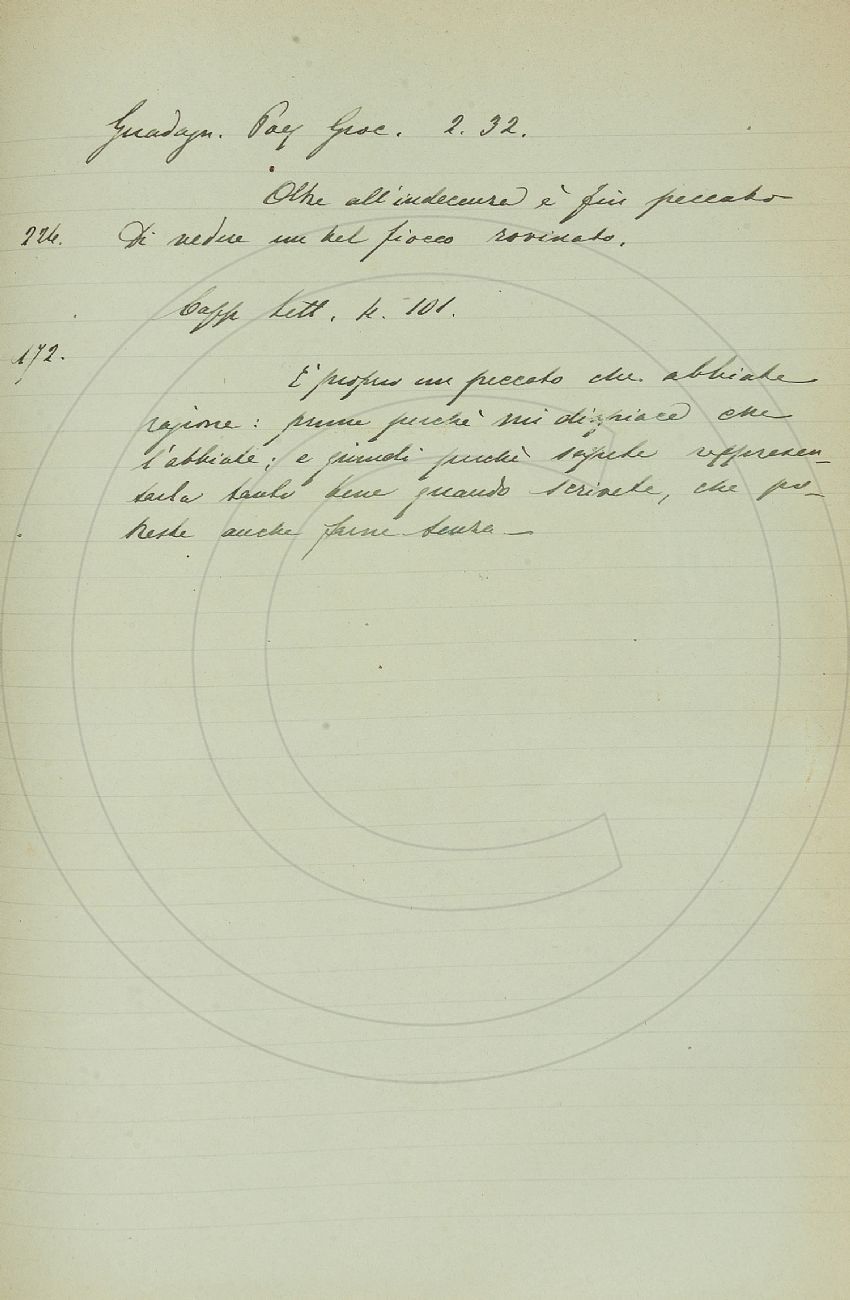 Guadagn. Poes Gioc. 2. 32.
Oltre all'indecenza è fin peccato
224. Di vedere un bel fiocco rovinato.
Capp Lett. 4. 101.
172.
È proprio un peccato che abbiate
ragione: prima perchè mi dispiace che
l'abbiate; e quindi perchè sapete rappresen-
tarla tanto bene quando scrivete, che po-
treste anche farne senza –